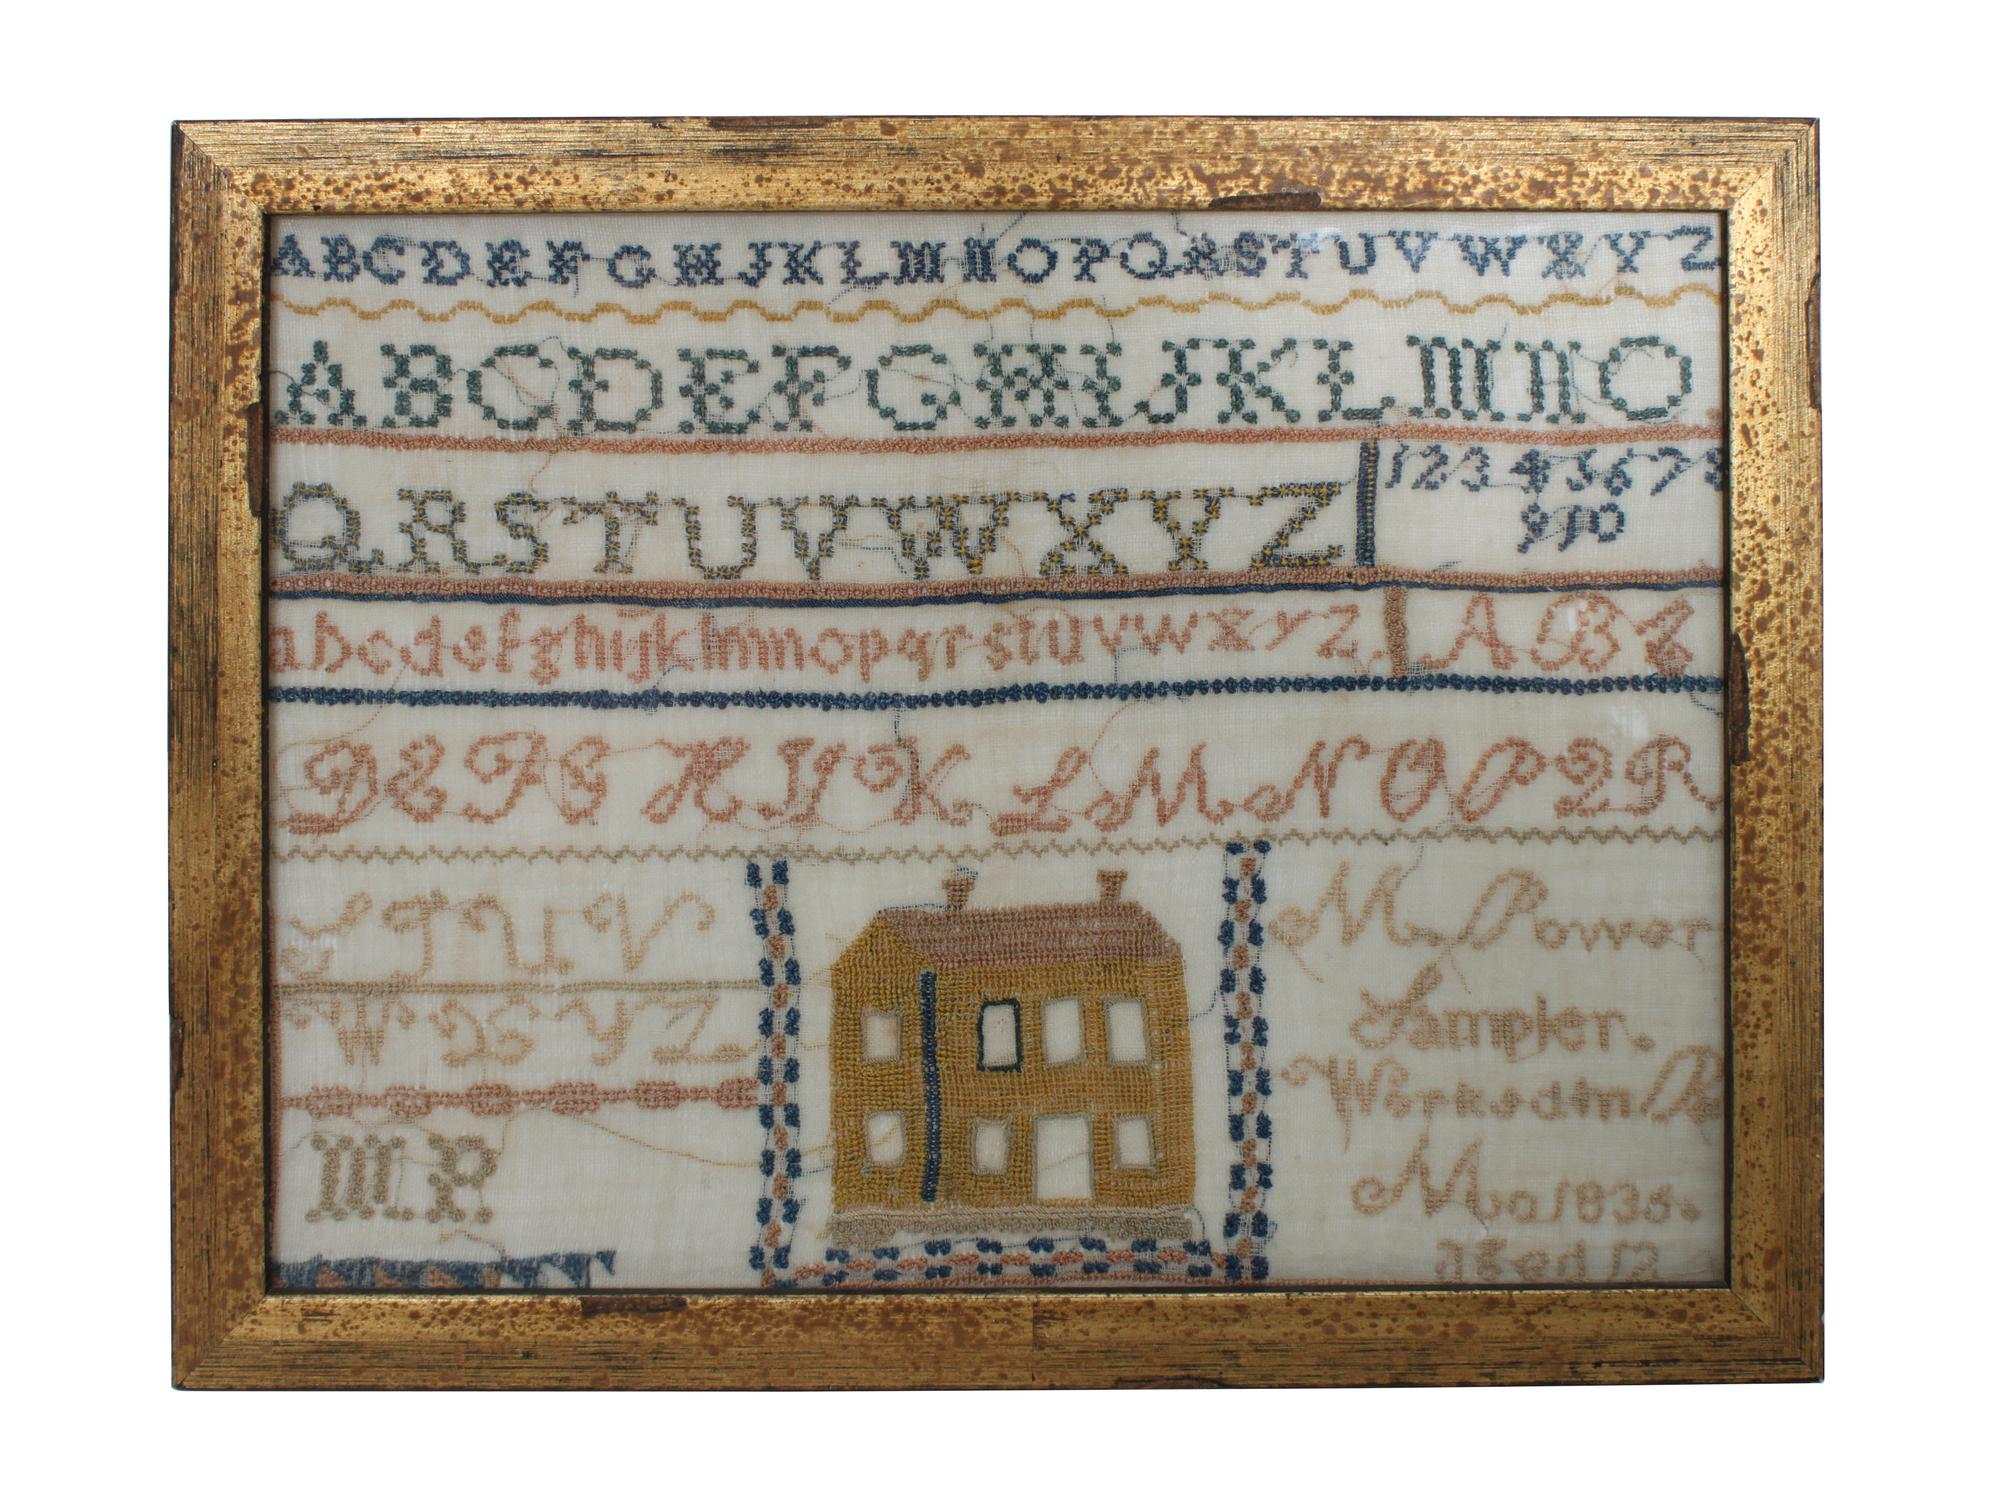 ABCDEFGHJKLMNOPQRSTUVWXYZ
ABCDEFGHIJKLMNO
QRSTUVWXYZ
12345678
910
abcdefghijklmnopqrstuvwxyz
ABC
DEFGHIJKLMNOPQR
STUV
WXYZ
M.P.
M. Power
Sampler.
Worked in R
Ma 1836.
aged 12